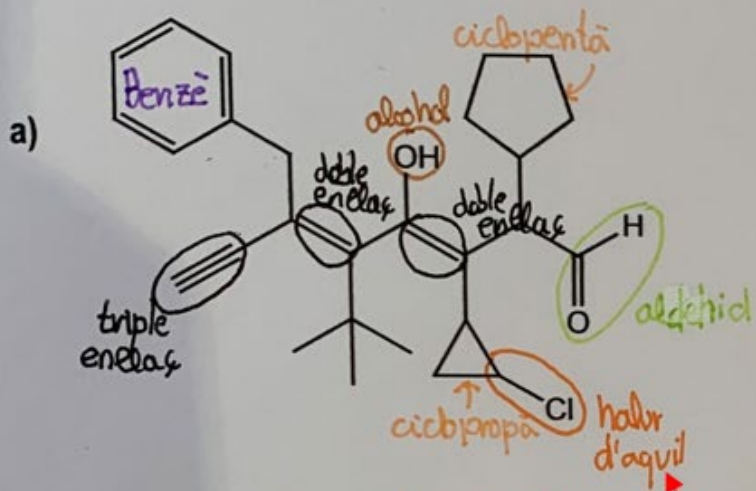 a)
Benzè
ciclopentà
alcohol
OH
doble
enllaç
doble
enllaç
H
O
aldehid
triple
enllaç
Cl
ciclopropà
halur
d'aquil